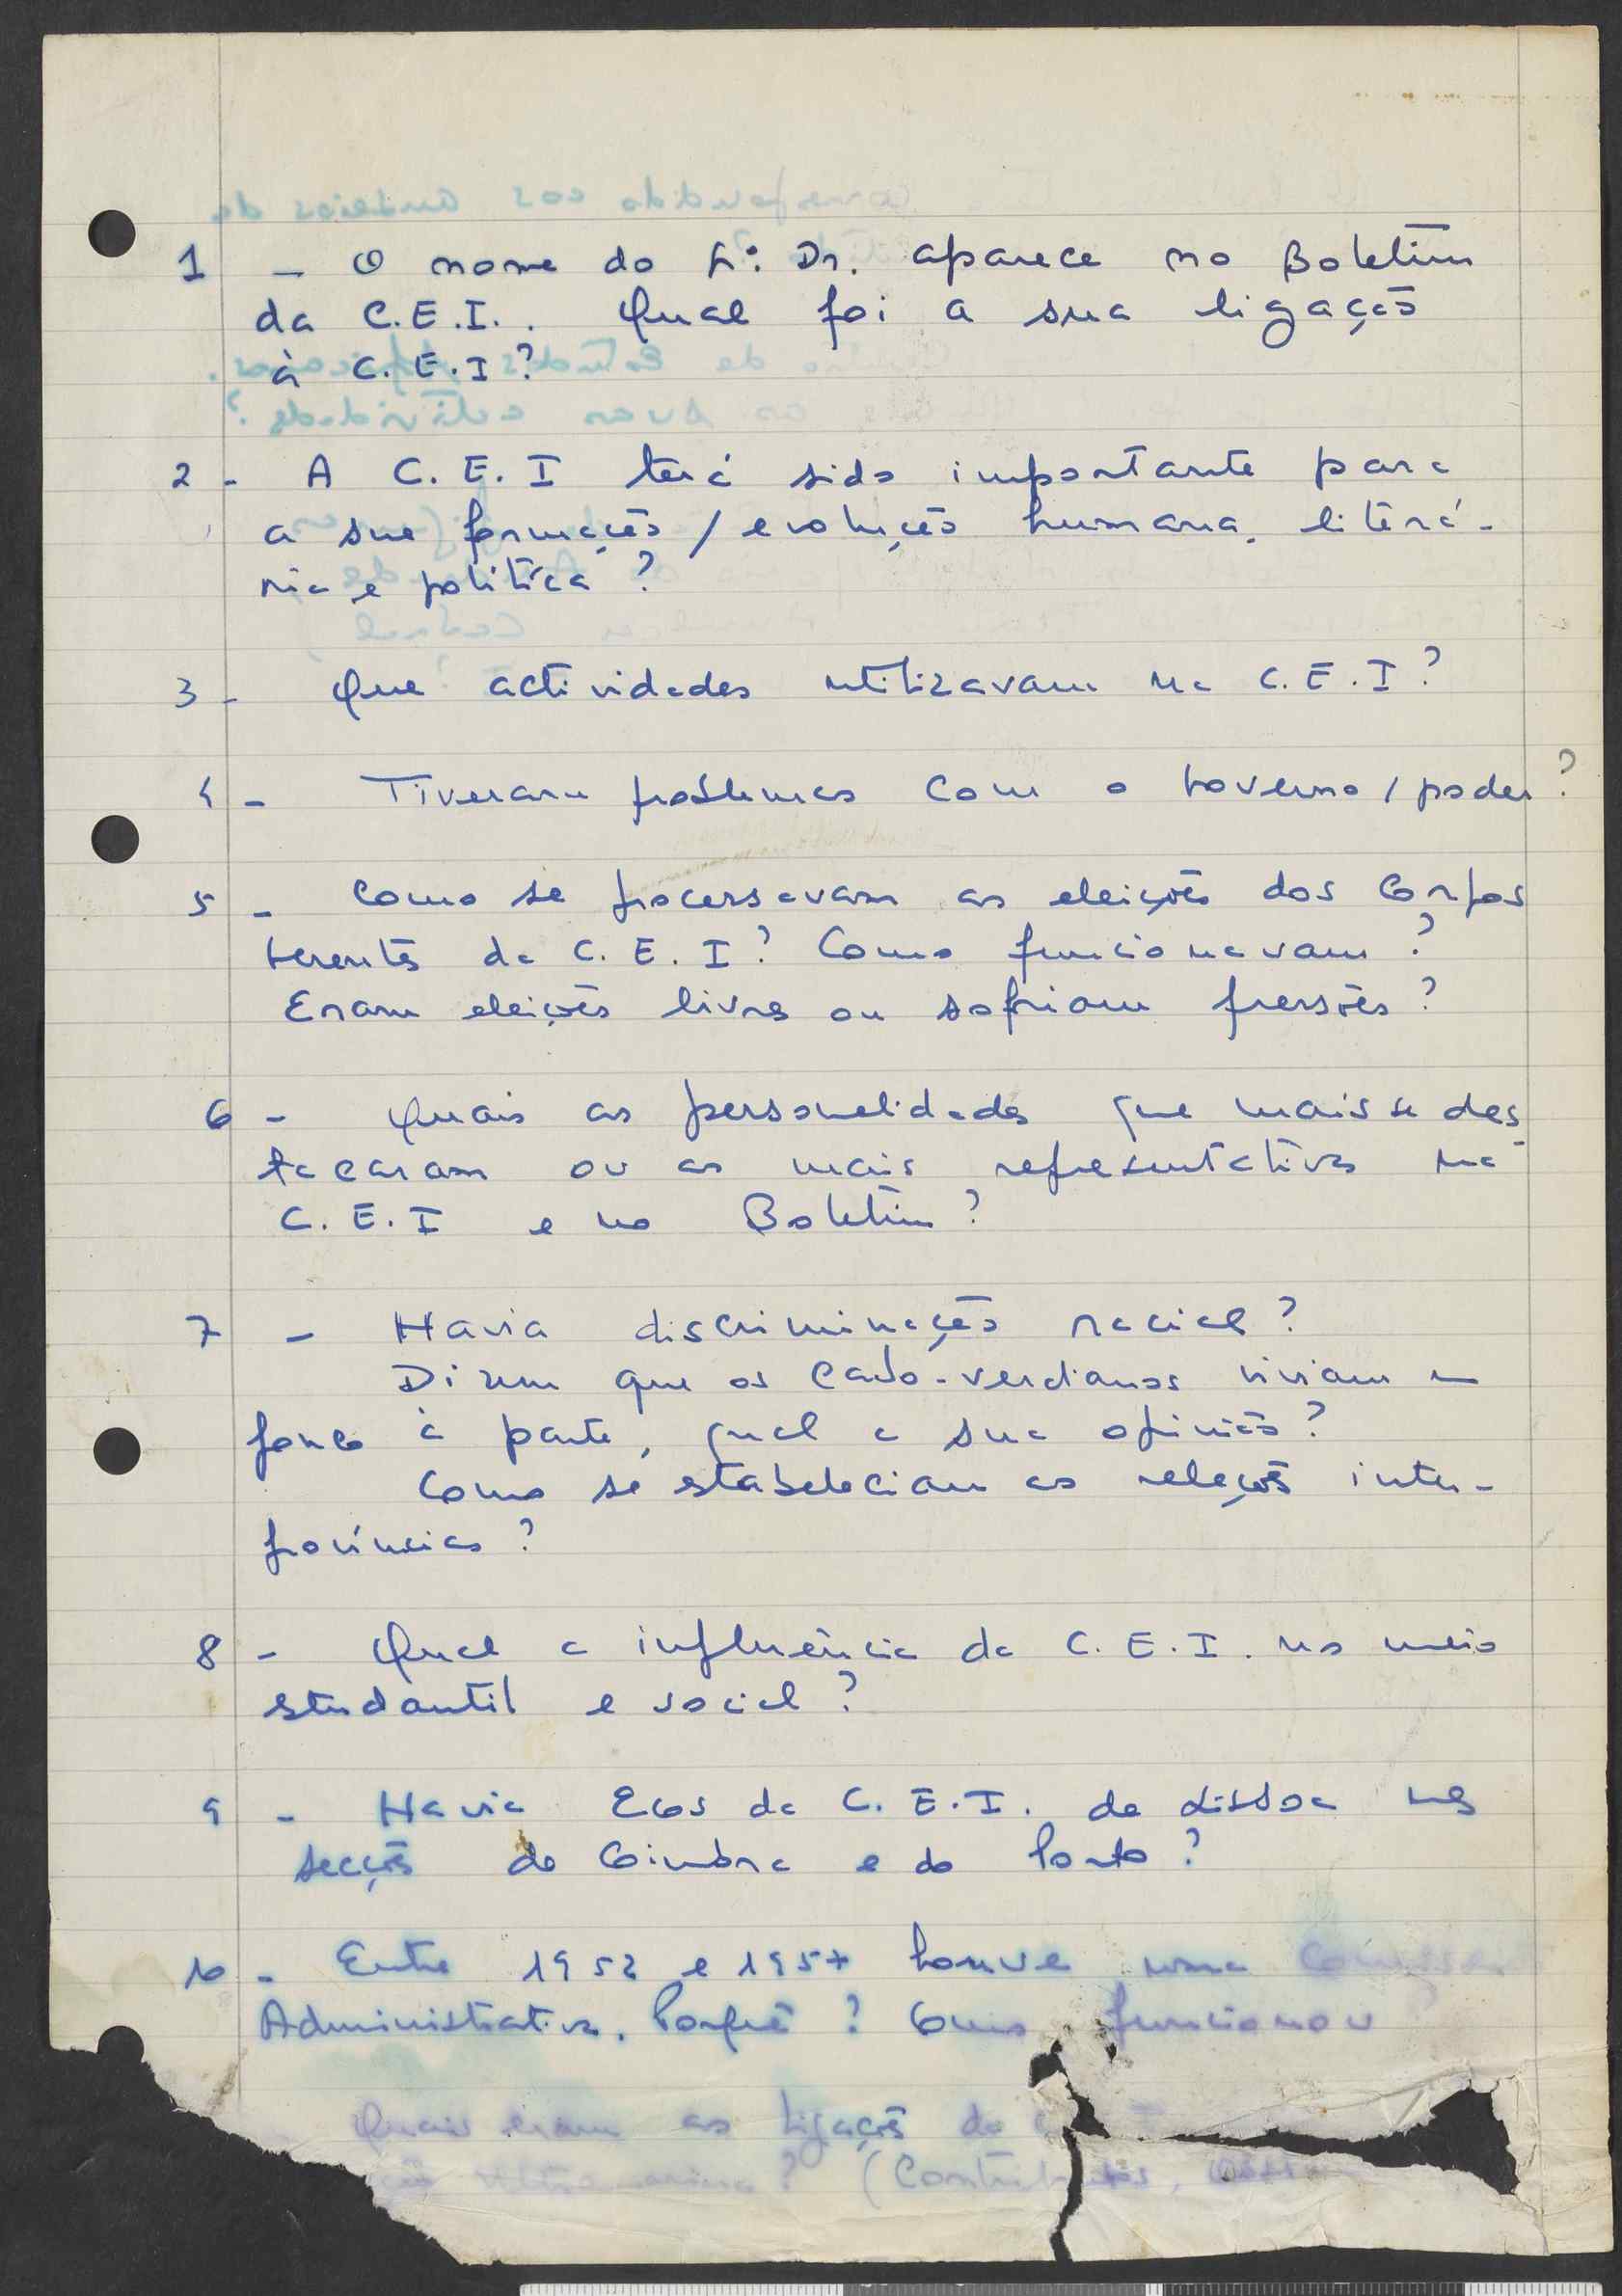 1 - O nome do Sr. Dr. aparece no Boletim
da C.E.I.. Qual foi a sua ligação
à C.E.I?
2 - A C.E.I terá sido importante para
a sua formação / evolução humana, literá-
ria e política?
3 - Que actividades utilizavam na C.E.I?
4 - Tiveram problemas com o Governo / poder?
5 - Como se processavam as eleições dos Corpos
Gerentes da C.E.I? Como funcionavam?
Eram eleições livres ou sofriam pressões?
6 - Quais as personalidades que mais se des-
tacaram ou as mais representativas na
C.E.I e no Boletim?
7 - Havia discriminação racial?
Dizem que os Cabo-verdianos viviam um
pouco à parte, qual a sua opinião?
Como se estabeleciam as relações inter-
províncias?
8 - Qual a influência da C.E.I. no meio
estudantil e social?
9 - Havia Ecos da C.E.I. de Lisboa nas
secções de Coimbra e do Porto?
10 - Entre 1952 e 1957 houve uma Comissão
Administrativa. Porquê? Como funcionou
Quais eram as ligações da
Ultramarina?